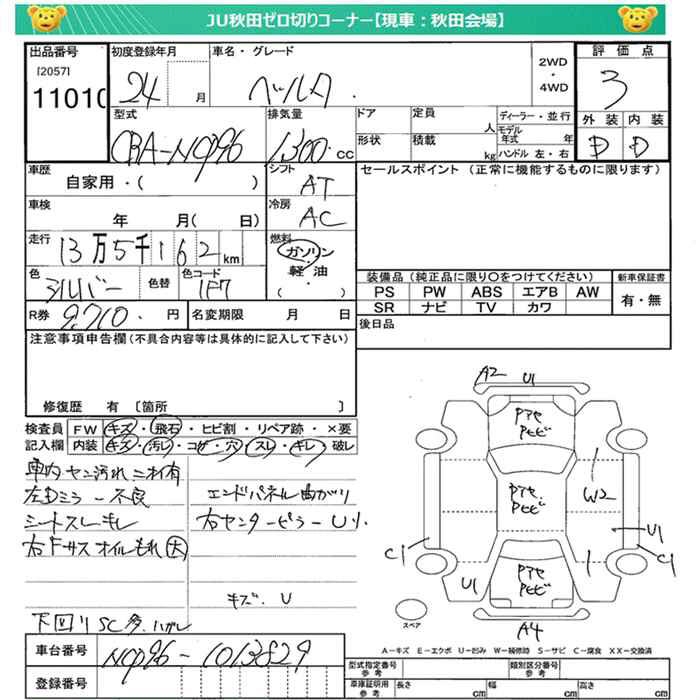 JU秋田ゼロ切りコーナー【現車：秋田会場】
出品番号
[2057]
11010
初度登録年月
24 月
車名・グレード
ベルタ
2WD
・
4WD
評価点
3
外装 内装
D D
型式
CBA-NCP96
排気量
1300 CC
ドア
定員
人
形状
積載
kg
ディーラー・並行
モデル年式 年
ハンドル 左・右
車歴
自家用・( )
シフト
AT
セールスポイント（正常に機能するものに限ります）
車検
年 月( 日)
冷房
AC
走行
13万5千162km
燃料
ガソリン
・
軽油
・
( )
色
シルバー
色替
色コード
1F7
装備品（純正品に限り○をつけてください）
PS PW ABS エアB AW
SR ナビ TV カワ
新車保証書
有・無
R券
9,710. 円
名変期限 月 日
後日品
注意事項申告欄（不具合内容等は具体的に記入して下さい）
修復歴 有 〔箇所 〕
検査員記入欄
FW キズ・飛石・ヒビ割・リペア跡・×要
内装 キズ・汚レ・コゲ・穴・スレ・キレ・破レ
車内 ヤニ汚れ ニオイ有
左Dミラー不良
シートスレ・キレ
右Fサスオイルもれ(大)
下回りSC多.ハガレ
エンドパネル曲がり
右センターピラーU小
キズ. U
A2
U1
Pアセ
Pヒビ
Pアセ.
Pヒビ
Pアセ
Pヒビ
W2
U1
C1
C1
U1
A4
スペア
A－キズ E－エクボ U－凹み W－補修跡 S－サビ C－腐食 XX－交換済
車台番号
NCP96-1013829
登録番号
型式指定番号
参考
類別区分番号
参考
車庫証明用
参考
長さ cm
幅 cm
高さ cm